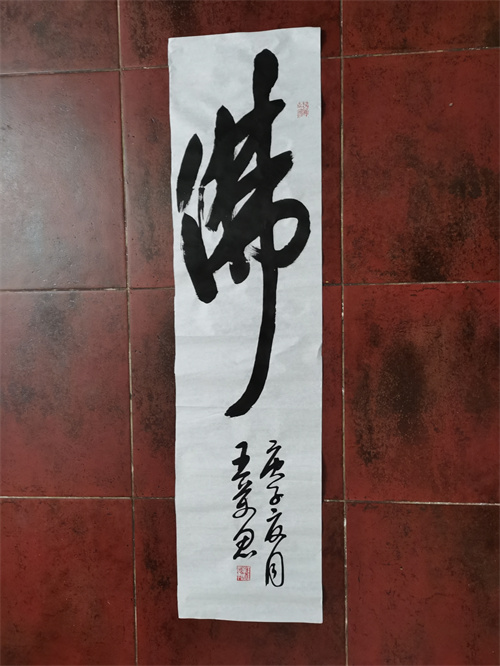 佛
庚子夏月
王万思